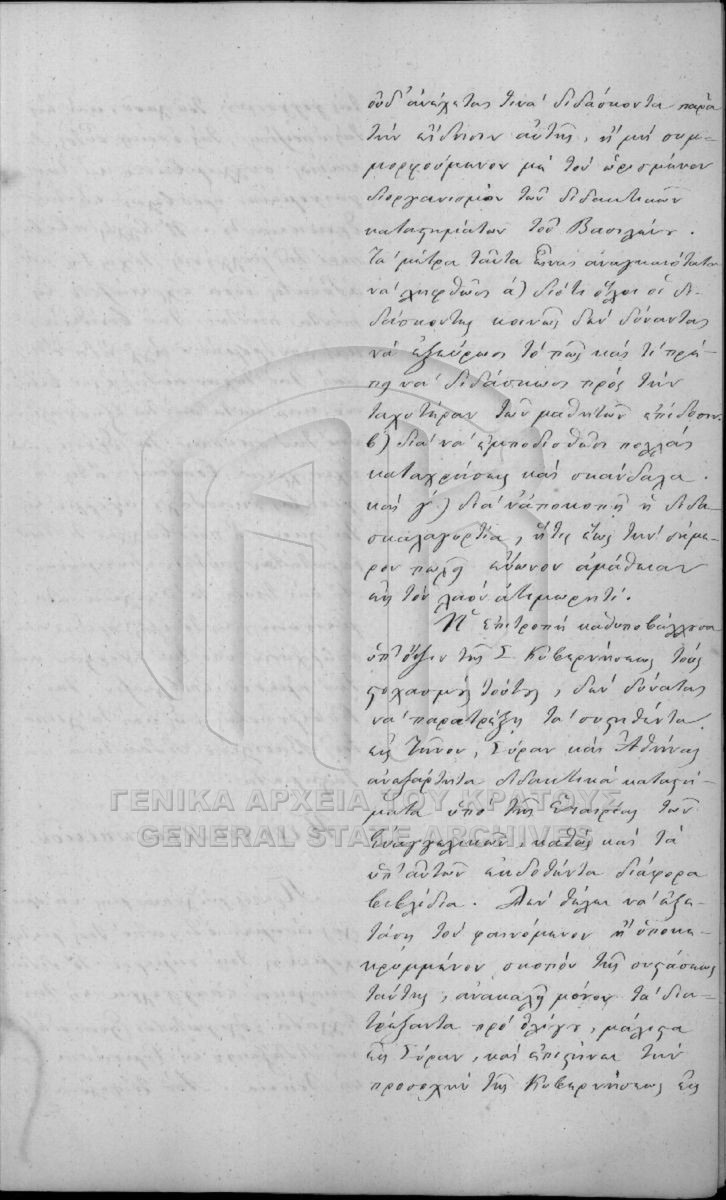 οὐδ' ἀνέχεται τινὰ διδάσκοντα παρὰ
τὴν εἴδησιν αὐτῆς, ἢ μὴ συμ-
μορφούμενον μὲ τὸν ὡρισμένον
διοργανισμὸν τῶν διδακτικῶν
καταστημάτων τοῦ Βασιλείου.
Τὰ μέτρα ταῦτα εἶναι ἀναγκαιότατα
νὰ ληφθῶσι ά) διότι ὅλοι οἱ δι-
δάσκοντες κοινῶς δὲν δύνανται
νὰ ἐξεύρωσι τὸ πῶς καὶ τί πρέ-
πει νὰ διδάσκωσι πρὸς τὴν
ταχυτέραν τῶν μαθητῶν ἐπίδοσιν.
β) διὰ νὰ ἐμποδισθῶσι πολλαὶ
καταχρήσεις καὶ σκάνδαλα.
καὶ γ) διὰ ν' ἀποκοπῇ ἡ διδα-
σκαλαγυρτία, ἥτις ἕως τὴν σήμε-
ρον πωλεῖ εὔωνον ἀμάθειαν
εἰς τὸν λαὸν ἀτιμωρητί.
Ἡ ἐπιτροπὴ καθυποβάλλουσα
ὑπ' ὄψιν τῆς Σ. Κυβερνήσεως τοὺς
στοχασμοὺς τούτους, δὲν δύναται
νὰ παρατρέξῃ τὰ συστηθέντα
εἰς Τῆνον, Σύραν καὶ Ἀθήνας
ἀνεξάρτητα διδακτικὰ καταστή-
ματα ὑπὸ τῆς Ἑταιρείας τῶν
Εὐαγγελικῶν, καθὼς καὶ τὰ
ὑπ' αὐτῶν ἐκδοθέντα διάφορα
βιβλίδια. Δὲν θέλει νὰ ἐξε-
τάσῃ τὸν φαινόμενον ἢ ὑποκε-
κρυμμένον σκοπὸν τῆς συστάσεως
ταύτης, ἀνακαλεῖ μόνον τὰ δια-
τρέξαντα πρὸ ὀλίγου, μάλιστα
εἰς Σύραν, καὶ ἐπιστήνει τὴν
προσοχὴν τῆς Κυβερνήσεως εἰς
ΓΕΝΙΚΑ ΑΡΧΕΙΑ ΤΟΥ ΚΡΑΤΟΥΣ
GENERAL STATE ARCHIVES